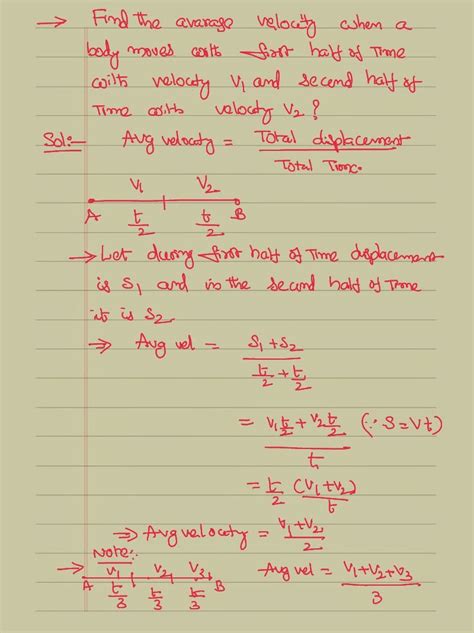 → Find the avarage velocity when a
body moves with first half of Time
with velocity V₁ and second half of
Time with velocity V₂ ?
Sol:- Avg velocity = Total displacement
Total Time.
V₁ V₂
A t/2 t/2 B
→ Let during first half of Time displacement
is S₁ and in the second half of Time
it is S₂
⇒ Avg vel = S₁ + S₂
t/2 + t/2
= V₁ t/2 + V₂ t/2 (∵ S = Vt)
t
= t/2 (V₁ + V₂)
t
⇒ Avg velocity = V₁ + V₂
2
Note:-
→ V₁ V₂ V₃ Avg vel = V₁ + V₂ + V₃
A t/3 t/3 t/3 B 3